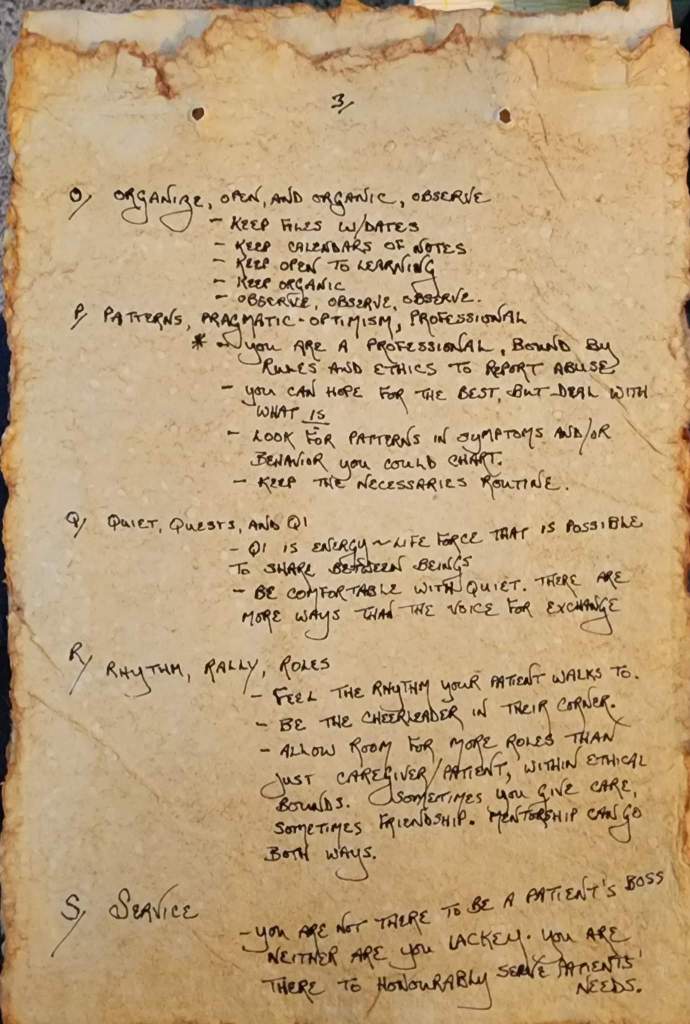 3/
O/ ORGANIZE, OPEN, AND ORGANIC, OBSERVE
- KEEP FILES W/DATES
- KEEP CALENDARS OF NOTES
- KEEP OPEN TO LEARNING
- KEEP ORGANIC
- OBSERVE, OBSERVE, OBSERVE.
P/ PATTERNS, PRAGMATIC-OPTIMISM, PROFESSIONAL
* - YOU ARE A PROFESSIONAL, BOUND BY
RULES AND ETHICS TO REPORT ABUSE
- YOU CAN HOPE FOR THE BEST, BUT DEAL WITH
WHAT IS
- LOOK FOR PATTERNS IN SYMPTOMS AND/OR
BEHAVIOR YOU COULD CHART.
- KEEP THE NECESSARIES ROUTINE.
Q/ QUIET, QUESTS, AND QI
- QI IS ENERGY ~ LIFE FORCE THAT IS POSSIBLE
TO SHARE BETWEEN BEINGS
- BE COMFORTABLE WITH QUIET. THERE ARE
MORE WAYS THAN THE VOICE FOR EXCHANGE
R/ RHYTHM, RALLY, ROLES
- FEEL THE RHYTHM YOUR PATIENT WALKS TO.
- BE THE CHEERLEADER IN THEIR CORNER.
- ALLOW ROOM FOR MORE ROLES THAN
JUST CAREGIVER/PATIENT, WITHIN ETHICAL
BOUNDS. SOMETIMES YOU GIVE CARE,
SOMETIMES FRIENDSHIP. MENTORSHIP CAN GO
BOTH WAYS.
S/ SERVICE
- YOU ARE NOT THERE TO BE A PATIENT'S BOSS
NEITHER ARE YOU LACKEY. YOU ARE
THERE TO HONOURABLY SERVE PATIENTS'
NEEDS.